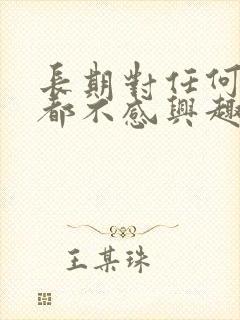 長期對任何
都不感興趣
王某珠